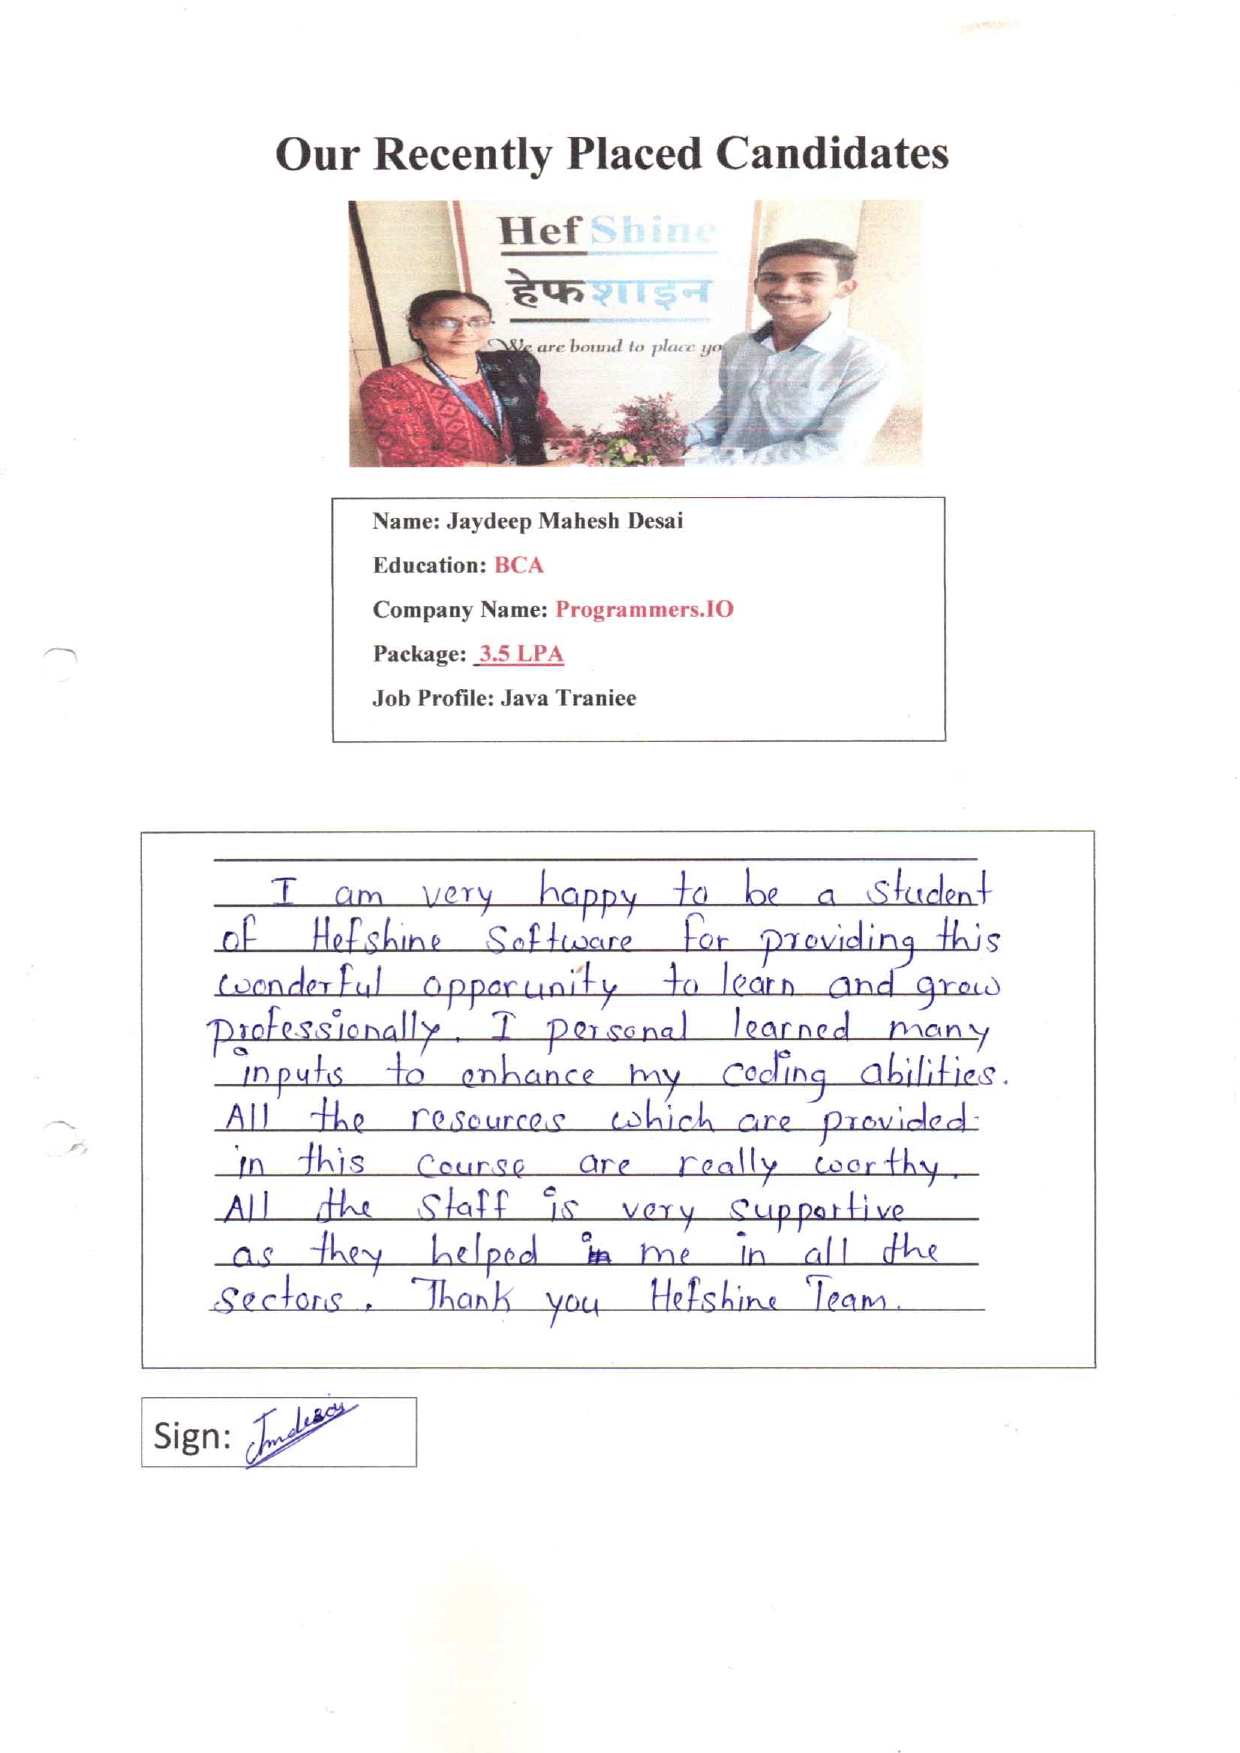 Our Recently Placed Candidates
Hef Shine
हेफशाइन
We are bound to place yo
Name: Jaydeep Mahesh Desai
Education: BCA
Company Name: Programmers.IO
Package: 3.5 LPA
Job Profile: Java Traniee
I am very happy to be a student
of Hefshine Software for providing this
wonderful opporunity to learn and grow
professionally. I personal learned many
inputs to enhance my coding abilities.
All the resources which are provided
in this course are really worthy.
All the staff is very supportive
as they helped in me in all the
sectors. Thank you Hefshine Team.
Sign: Jmdesai